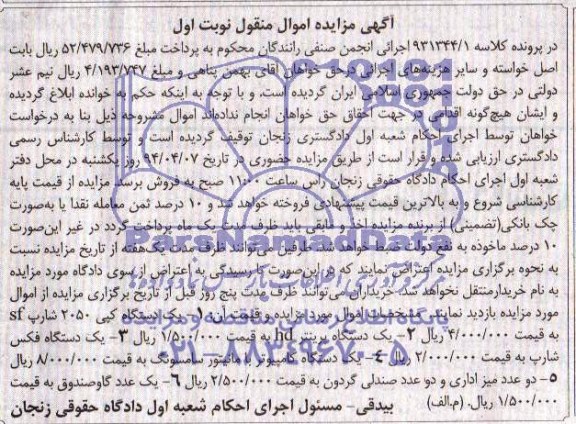 آگهی مزایده اموال منقول نوبت اول
در پرونده کلاسه ۹۳۱۳۴۴/۱ اجرائی انجمن صنفی رانندگان محکوم به پرداخت مبلغ ۵۲/۴۷۹/۷۳۶ ریال بابت
اصل خواسته و سایر هزینه‌های اجرائی درحق خواهان آقای بهمن پناهی و مبلغ ۴/۱۹۳/۷۴۷ ریال نیم عشر
دولتی در حق دولت جمهوری اسلامی ایران گردیده است. و با توجه به اینکه حکم به خوانده ابلاغ گردیده
و ایشان هیچ‌گونه اقدامی در جهت احقاق حق خواهان انجام نداده‌اند اموال مشروحه ذیل بنا به درخواست
خواهان توسط اجرای احکام شعبه اول دادگستری زنجان توقیف گردیده است و توسط کارشناس رسمی
دادگستری ارزیابی شده و قرار است از طریق مزایده حضوری در تاریخ ۹۴/۰۴/۰۷ روز یکشنبه در محل دفتر
شعبه اول اجرای احکام دادگاه حقوقی زنجان راس ساعت ۱۱:۰۰ صبح به فروش برسد. مزایده از قیمت پایه
کارشناسی شروع و به بالاترین قیمت پیشنهادی فروخته خواهد شد و ۱۰ درصد ثمن معامله نقدا یا به‌صورت
چک بانکی(تضمینی) از برنده مزایده اخذ و مابقی باید ظرف مدت یک ماه پرداخت گردد در غیر این‌صورت
۱۰ درصد ماخوذه به نفع دولت ضبط خواهد شد. طرفین می‌توانند ظرف مدت یک‌هفته از تاریخ مزایده نسبت
به نحوه برگزاری مزایده اعتراض نمایند که در این‌صورت تا رسیدگی به اعتراض از سوی دادگاه مورد مزایده
به نام خریدارمنتقل نخواهد شد. خریداران می‌توانند ظرف مدت پنج روز قبل از تاریخ برگزاری مزایده از اموال
مورد مزایده بازدید نمایند. مشخصات اموال مورد مزایده و قیمت آن: ۱- یک دستگاه کپی ۲۰۵۰ شارپ sf
به قیمت ۴/۰۰۰/۰۰۰ ریال ۲- یک دستگاه پرینتر hd به قیمت ۱/۵۰۰/۰۰۰ ریال ۳- یک دستگاه فکس
شارپ به قیمت ۲/۰۰۰/۰۰۰ ریال ۴- یک دستگاه کامپیوتر با مانیتور سامسونگ به قیمت ۸/۰۰۰/۰۰۰ ریال
۵- دو عدد میز اداری و دو عدد صندلی گردون به قیمت ۲/۵۰۰/۰۰۰ ریال ۶- یک عدد گاوصندوق به قیمت
۱/۵۰۰/۰۰۰ ریال. (م.الف) بیدقی- مسئول اجرای احکام شعبه اول دادگاه حقوقی زنجان
ParsNamadData
پایگاه اطلاع رسانی مناقصه و مزایده
۰۲۱-۸۸۳۴۹۶۷۰-۵